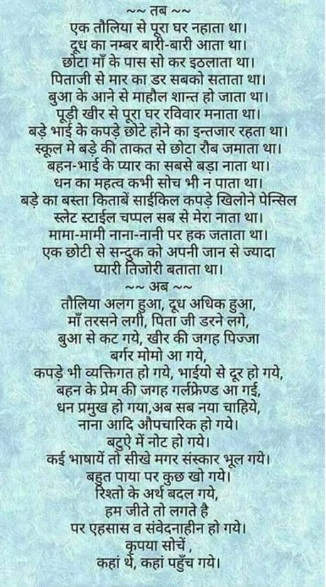 ~~ तब ~~
एक तौलिया से पूरा घर नहाता था।
दूध का नम्बर बारी-बारी आता था।
छोटा माँ के पास सो कर इठलाता था।
पिताजी से मार का डर सबको सताता था।
बुआ के आने से माहौल शान्त हो जाता था।
पूड़ी खीर से पूरा घर रविवार मनाता था।
बड़े भाई के कपड़े छोटे होने का इन्तजार रहता था।
स्कूल मे बड़े की ताकत से छोटा रौब जमाता था।
बहन-भाई के प्यार का सबसे बड़ा नाता था।
धन का महत्व कभी सोच भी न पाता था।
बड़े का बस्ता किताबें साईकिल कपड़े खिलोने पेन्सिल
स्लेट स्टाईल चप्पल सब से मेरा नाता था।
मामा-मामी नाना-नानी पर हक जताता था।
एक छोटी से सन्दुक को अपनी जान से ज्यादा
प्यारी तिजोरी बताता था।
~~ अब ~~
तौलिया अलग हुआ, दूध अधिक हुआ,
माँ तरसने लगी, पिता जी डरने लगे,
बुआ से कट गये, खीर की जगह पिज्जा
बर्गर मोमो आ गये,
कपड़े भी व्यक्तिगत हो गये, भाईयो से दूर हो गये,
बहन के प्रेम की जगह गर्लफ्रेण्ड आ गई,
धन प्रमुख हो गया,अब सब नया चाहिये,
नाना आदि औपचारिक हो गये।
बटुऐ में नोट हो गये।
कई भाषायें तो सीखे मगर संस्कार भूल गये।
बहुत पाया पर कुछ खो गये।
रिश्तो के अर्थ बदल गये,
हम जीते तो लगते है
पर एहसास व संवेदनाहीन हो गये।
कृपया सोचें ,
कहां थे, कहां पहुँच गये।